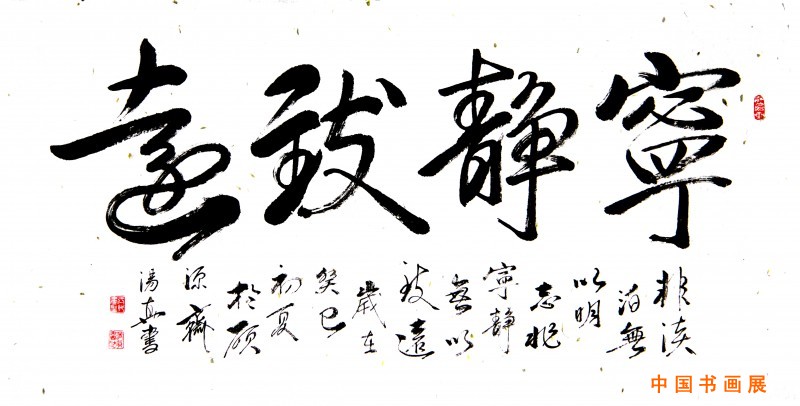 寧靜致遠
非淡
泊無
以明
志非
寧靜
無以
致遠
歲在
癸巳
初夏
於碩
源齋
湯真書
中国书画展